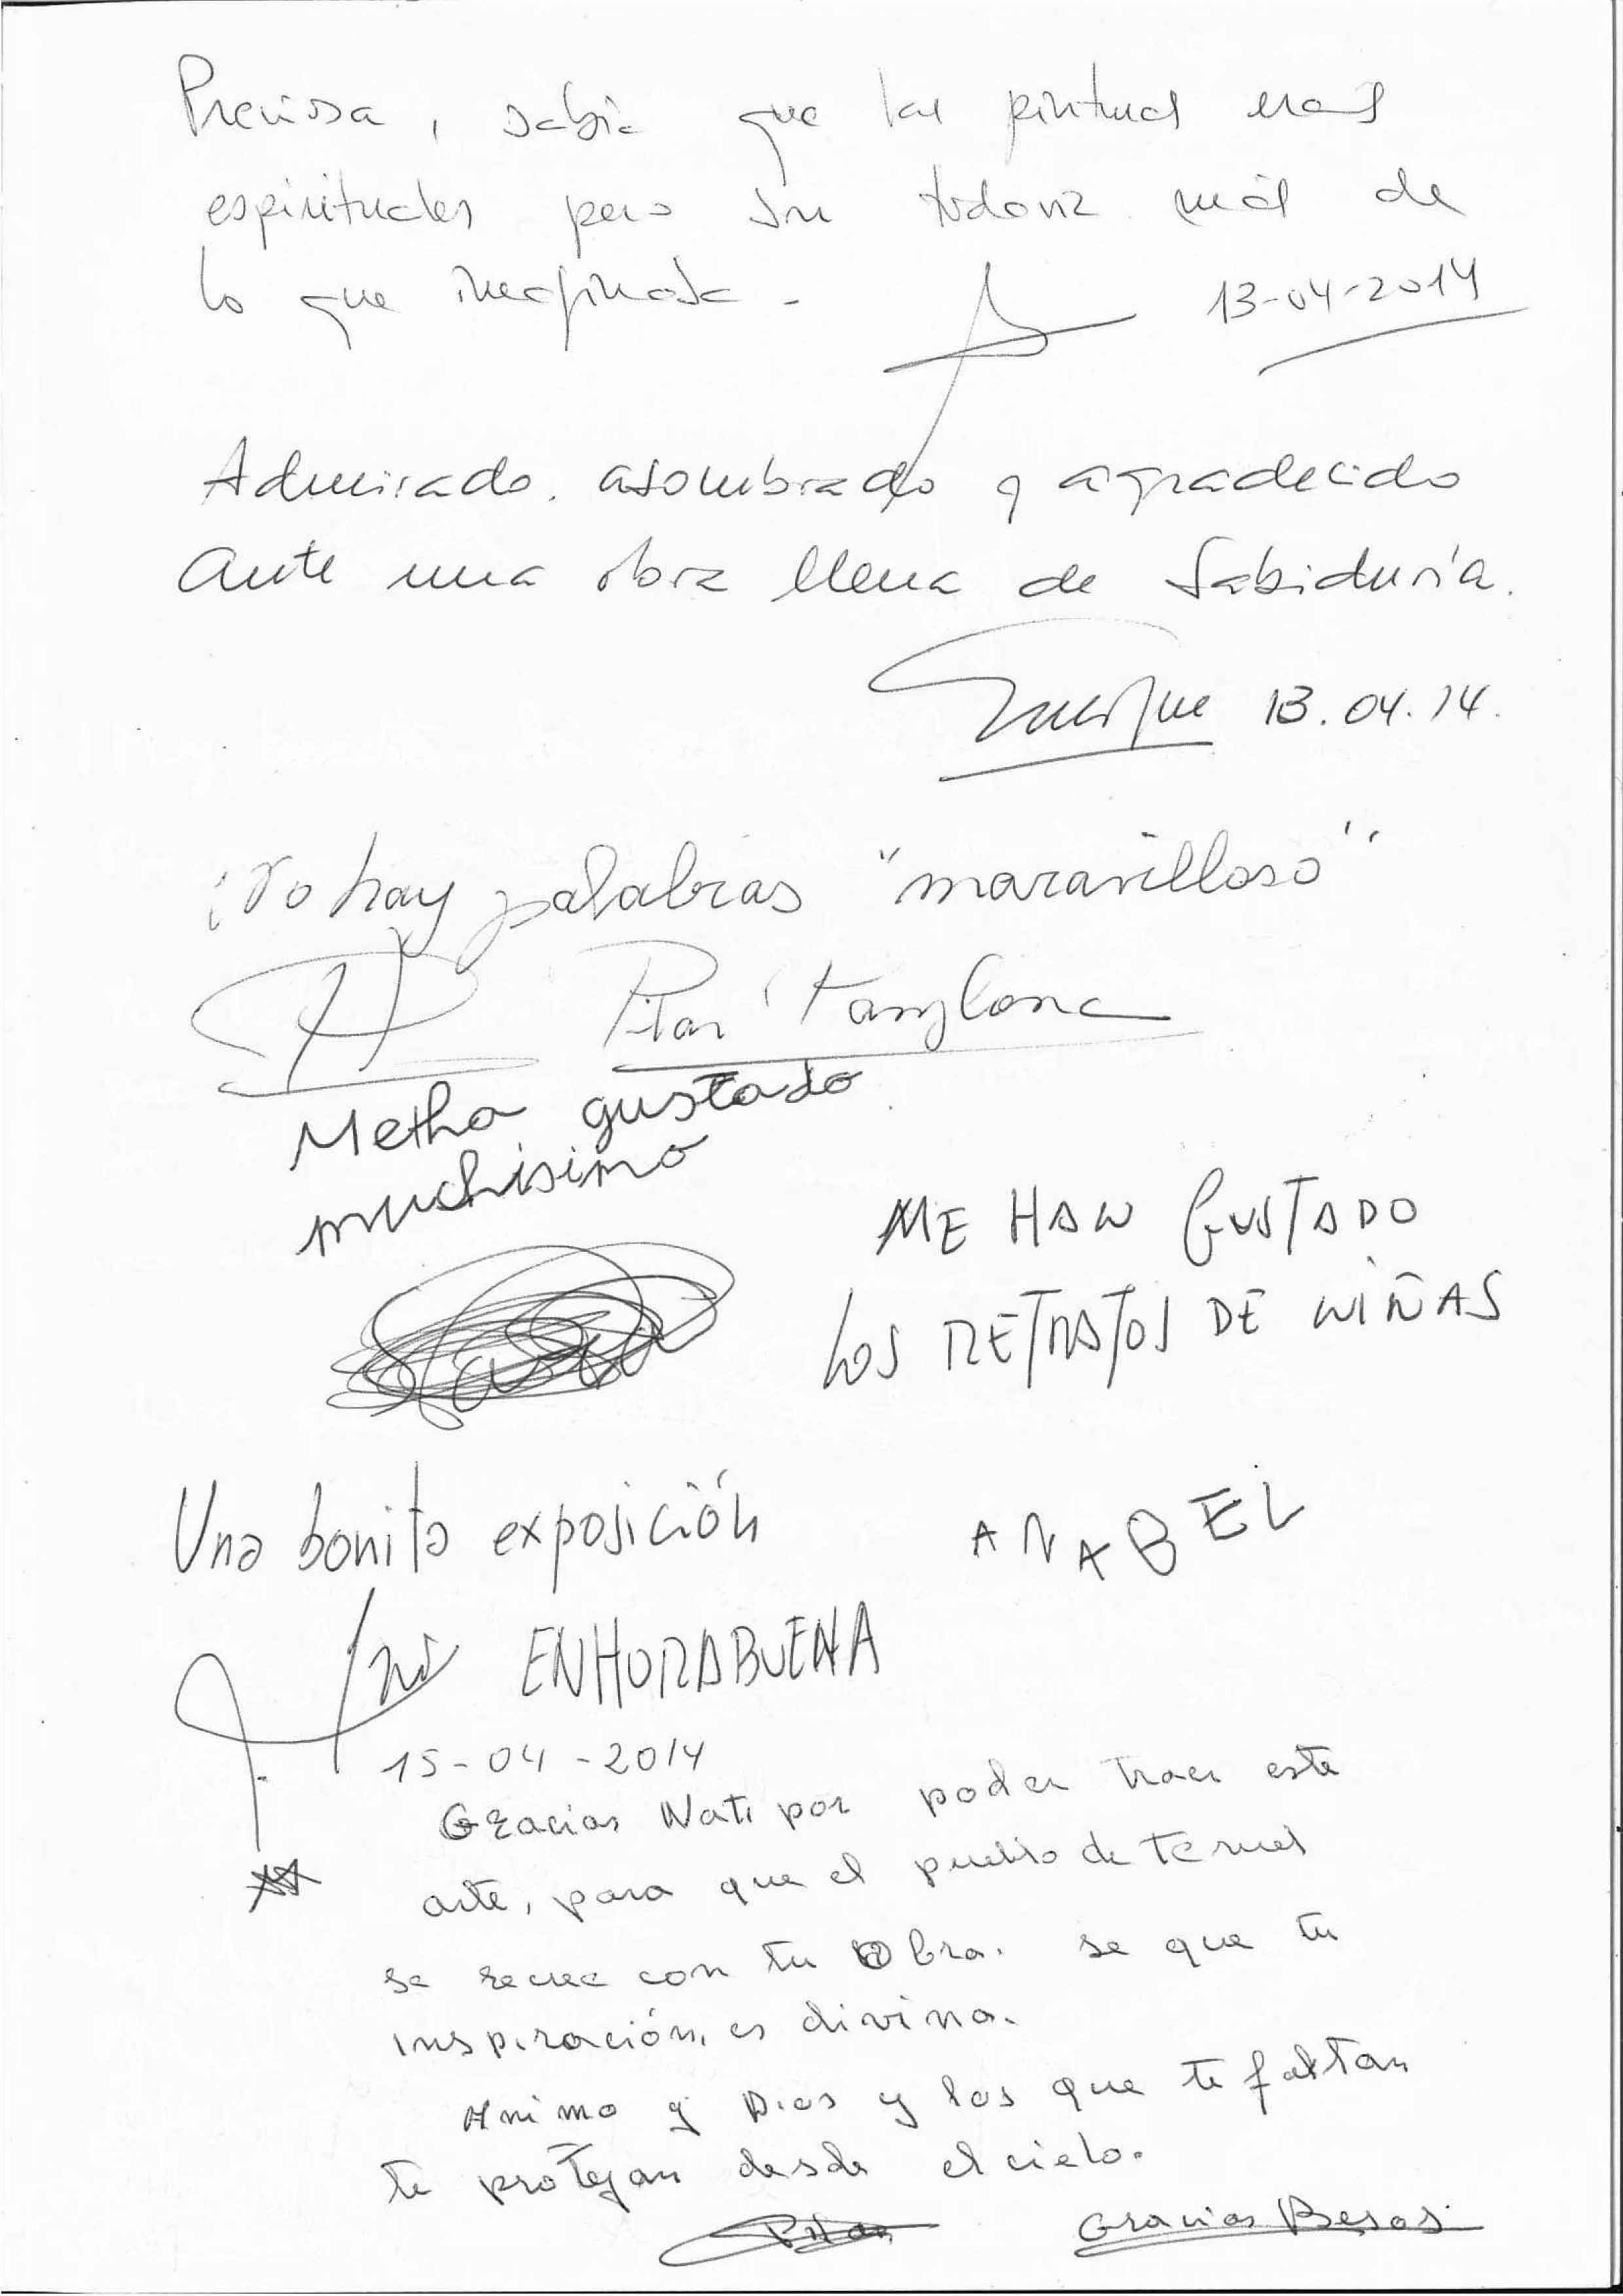 Preciosa, sabía que las pinturas eran
espirituales pero son todavia más de
lo que imaginaba.
13-04-2014
Admirado, asombrado y agradecido
Ante una obra llena de Sabiduría.
Enrique 13.04.14.
¡No hay palabras "maravilloso"
Pilar
Metha gustado
muchisimo
Sara
ME HAN GUSTADO
LOS RETRATOS DE NIÑAS
ANABEL
Una bonita exposición
ENHORABUENA
15-04-2014
Gracias Nati por poder traer este
arte, para que el pueblo de Teruel
se recree con tu Obra. se que tu
inspiración, es divina.
Animo y Dios y los que te faltan
te protejan desde el cielo.
Pilar Gracias Besos